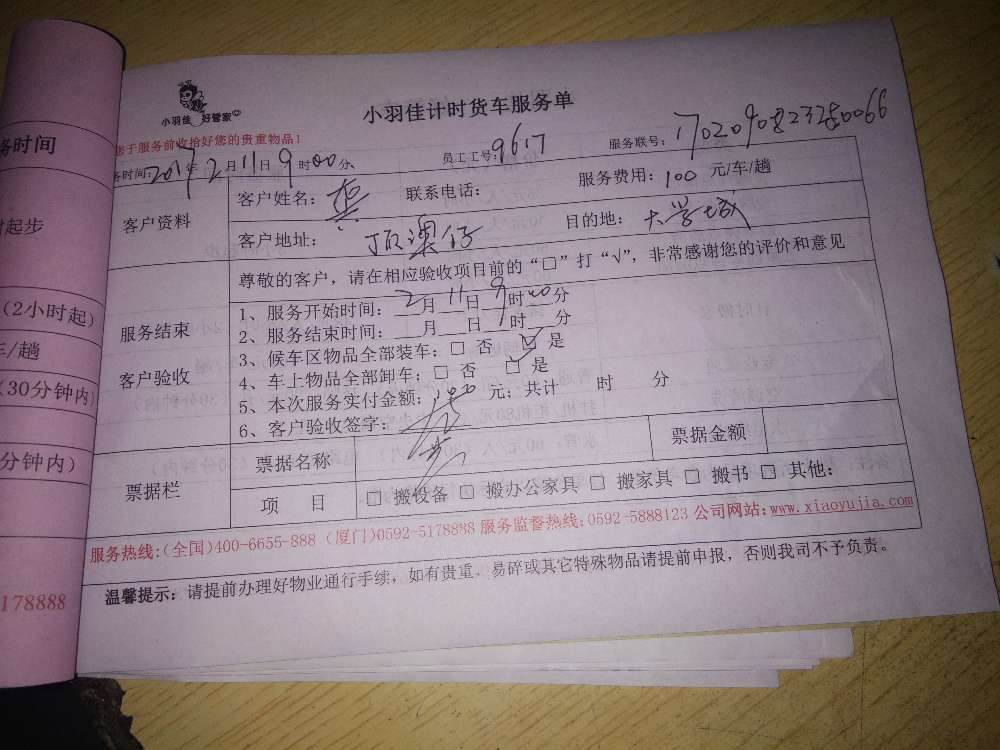 小羽佳 好管家
小羽佳计时货车服务单
您于服务前收拾好您的贵重物品!
务时间:2017年2月11日9时00分 员工工号:9617 服务联号:
客户资料 客户姓名:龚 联系电话: 服务费用:100 元/车/趟
客户地址:顶澳仔 目的地:大学城
服务结束
客户验收
尊敬的客户,请在相应验收项目前的“□”打“√”,非常感谢您的评价和意见
1、服务开始时间:2月11日9时00分
2、服务结束时间: 月 日 时 分
3、候车区物品全部装车:□ 否 ☑ 是
4、车上物品全部卸车:□ 否 ☑ 是
5、本次服务实付金额:100 元;共计 时 分
6、客户验收签字:
票据栏 票据名称 票据金额
项 目 □ 搬设备 □ 搬办公家具 □ 搬家具 □ 搬书 □ 其他:
服务热线:(全国)400-6655-888 (厦门)0592-5178888 服务监督热线:0592-5888123 公司网站:www.xiaoyujia.com
温馨提示:请提前办理好物业通行手续,如有贵重、易碎或其它特殊物品请提前申报,否则我司不予负责。
务时间
时起步
(2小时起)
车/趟
(30分钟内)
分钟内)
178888